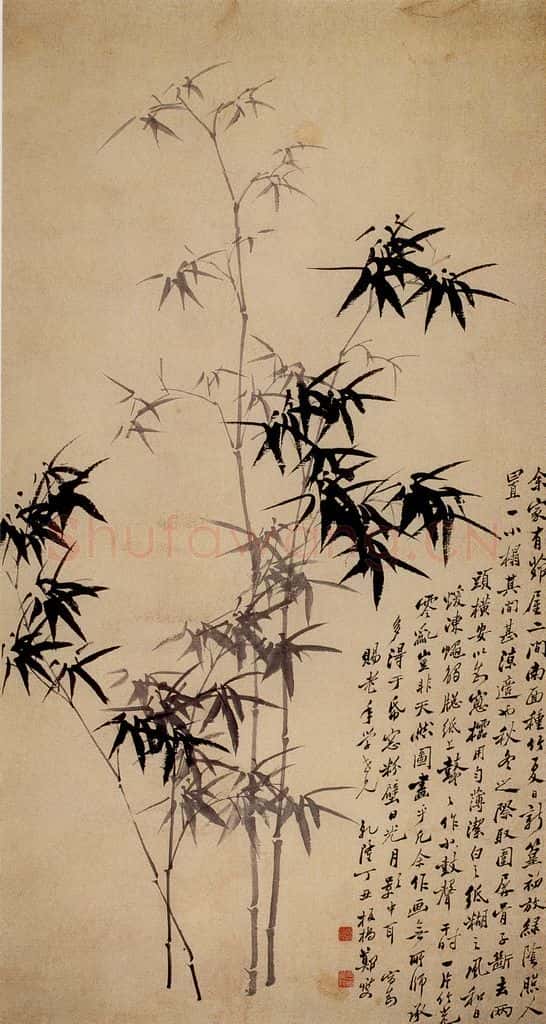 余家有茆屋二間南面種竹夏日新篁初放綠陰照人
置一小榻其間甚涼適也秋冬之際取圍屏骨子斷去兩
頭橫安以為窓櫺用勻薄潔白之紙糊之風和日
煖凍蠅觸牕紙上鼕〻作小鼓聲于時一片竹影
零亂豈非天然圖畫乎凡余作画無所師承
多得于紙窓粉壁日光月影中耳 寫為
賜老年学兄 乾隆丁丑板橋鄭燮
Shufawang.CN